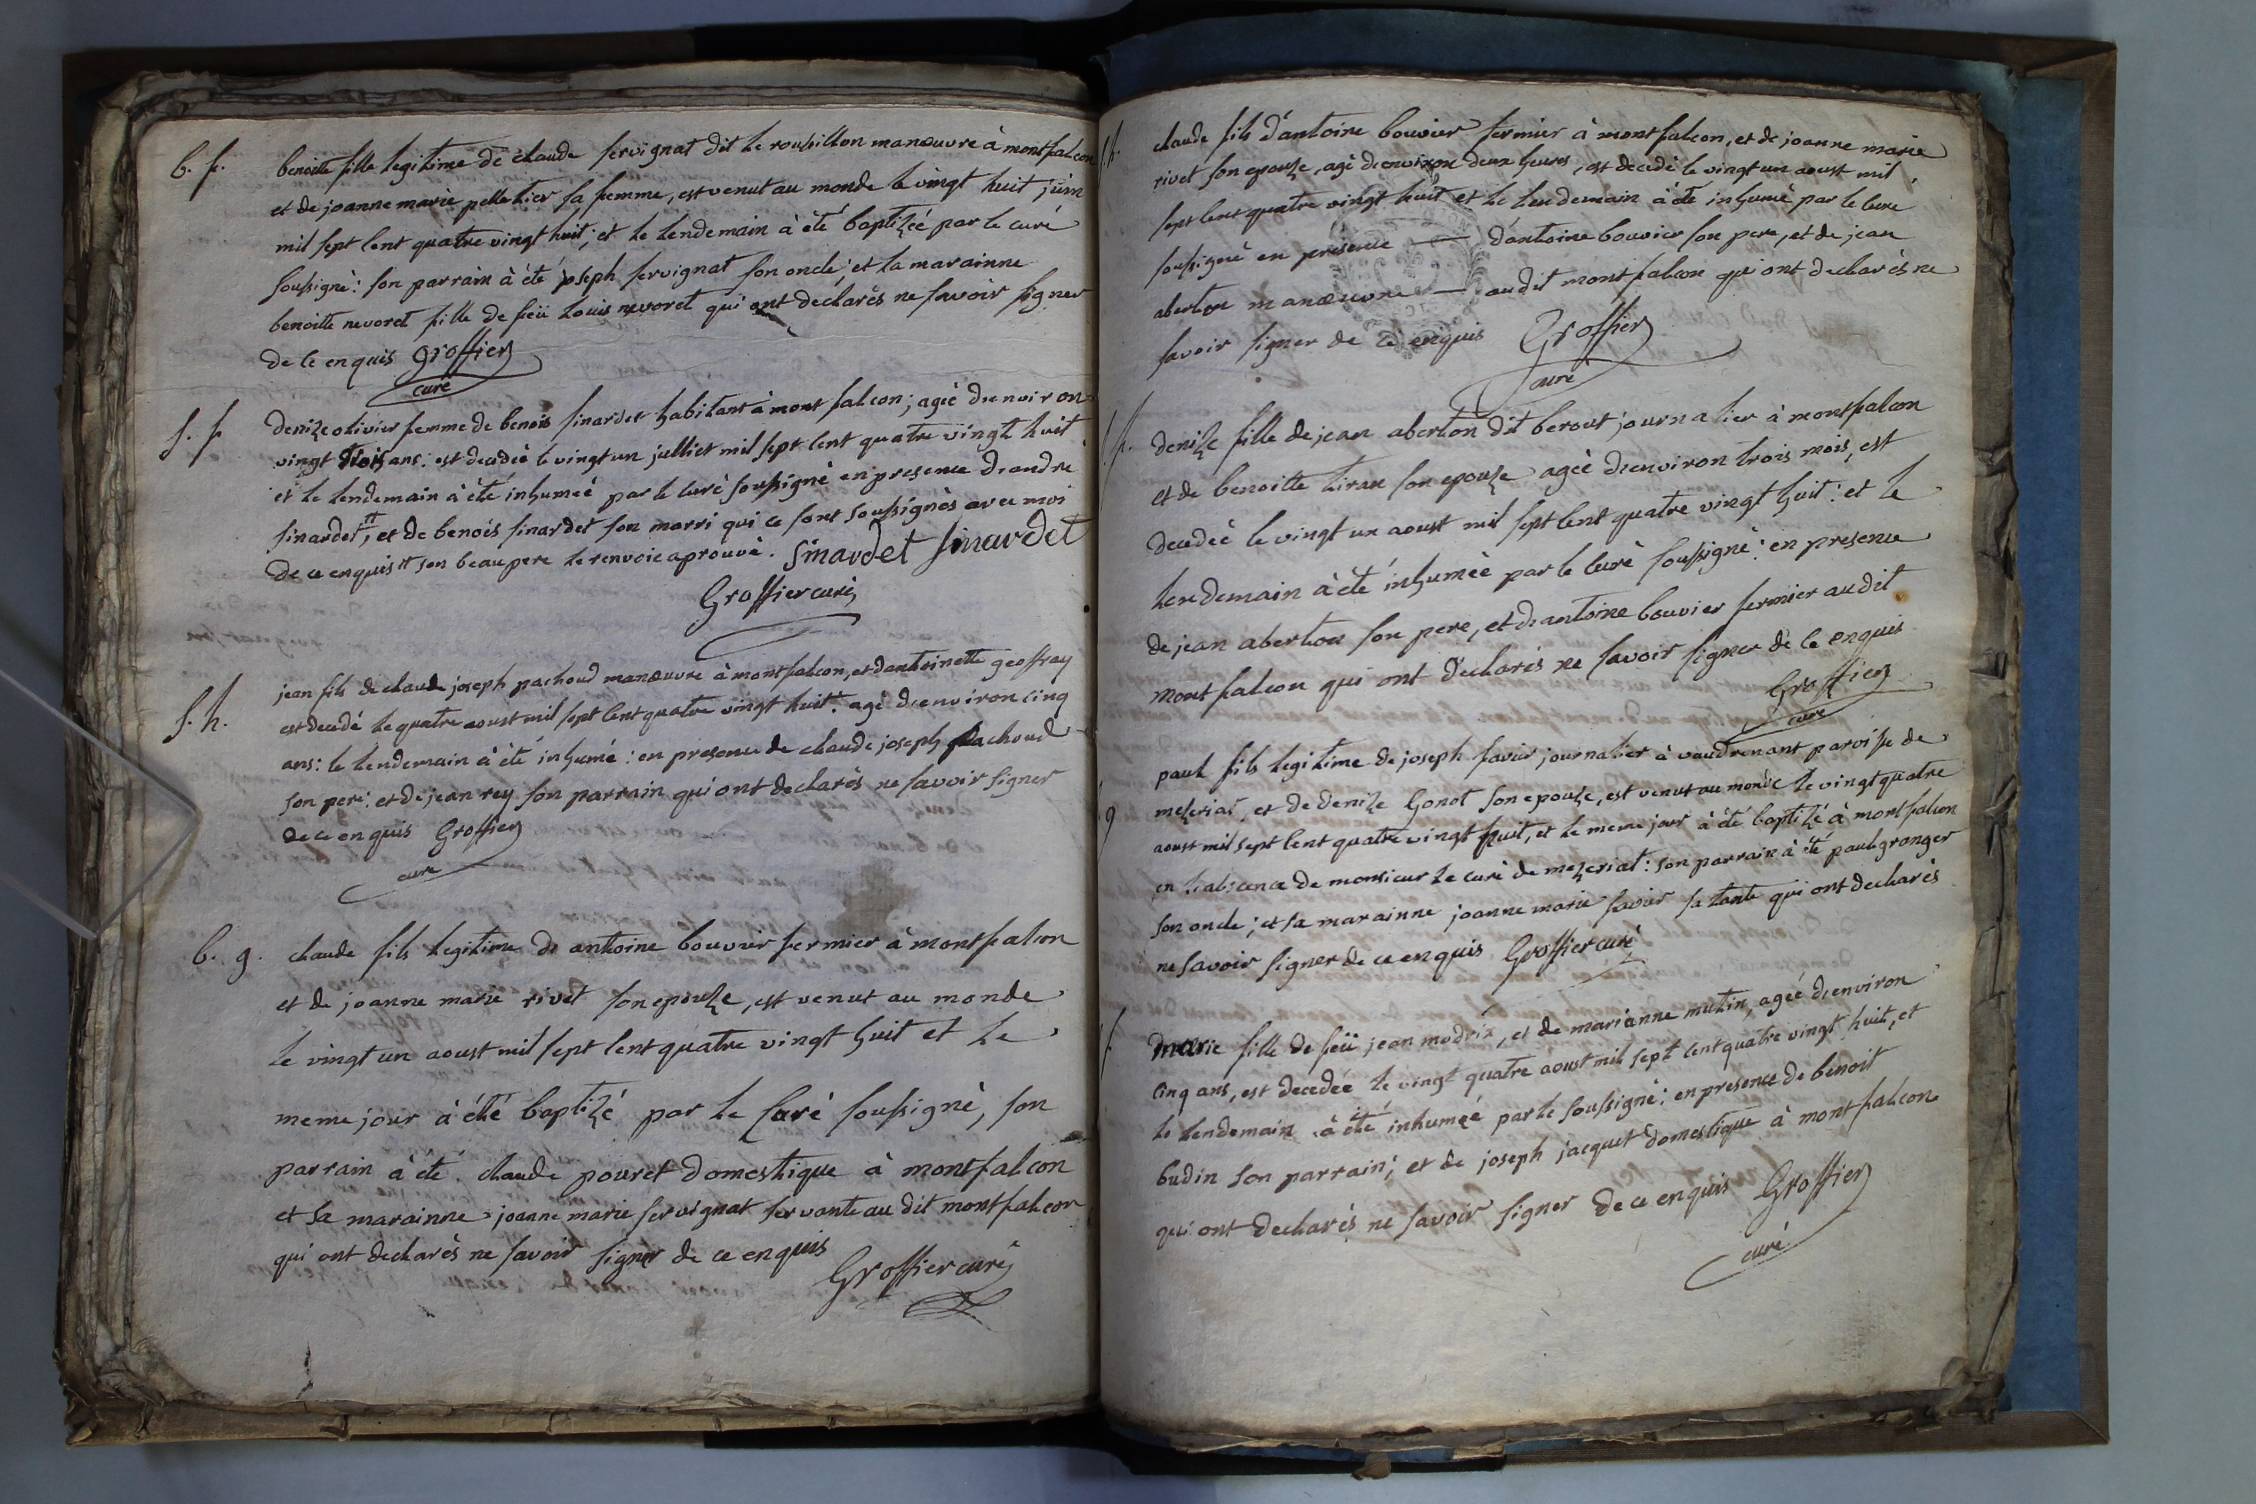 b. f.
benoitte fille legitime de claude servignat dit le roussillon manœuvre à montfalcon
et de joanne marie pelletier sa femme, est venut au monde le vingt huit juin
mil sept cent quatre vingt huit; et le lendemain à été baptizéé par le curé
soussigné: son parrain à été joseph servignat son oncle; et la marainne
benoitte nevoret fille de feü louis nevoret qui ont declarés ne savoir signer
de ce enquis Groffier
curé
S. f
denize olivier femme de benois sinardet habitant à mont falcon; agéé d'environ
vingt trois ans: est decedéé le vingt un julliet mil sept cent quatre vingt huit
et le lendemain à été inhuméé par le curé soussigné en presence d'andré
sinardet, et de benois sinardet son marri qui ce sont soussignés avec moi
de ce enquis son beau pere le renvoie aprouvé. Sinardet Sinardet
Groffier curé
S. h.
jean fils de claude joseph pachoud manœuvre à montfalcon, et d'antoinette geoffray
est decedé le quatre aoust mil sept cent quatre vingt huit: agé d'environ cinq
ans: le lendemain à été inhumé: en presence de claude joseph pachoud
son pere: et de jean rey son parrain qui ont declarés ne savoir signer
de ce enquis Groffier
curé
b. g.
claude fils legitime de antoine bouvier fermier à montfalcon
et de joanne marie rivet son epouze, est venut au monde
le vingt un aoust mil sept cent quatre vingt huit et le
meme jour à été baptizé par le curé soussigné, son
parrain à été claude pouret domestique à montfalcon
et sa marainne joanne marie servignat servante au dit montfalcon
qui ont declarés ne savoir signer de ce enquis
Groffier curé
claude fils d'antoine bouvier fermier à montfalcon, et de joanne marie
rivet son epouze, agé d'environ deux heures, est decedé le vingt un aoust mil
sept cent quatre vingt huit et le lendemain à été inhumé par le curé
soussigné en presence — d'antoine bouvier son pere, et de jean
aberton manœuvre — audit montfalcon qui ont declarés ne
savoir signer de ce enquis Groffier
curé
denize fille de jean aberton dit berout journalier à montfalcon
et de benoitte tiran son epouze agéé d'environ trois mois, est
decedéé le vingt un aoust mil sept cent quatre vingt huit: et le
lendemain à été inhuméé par le curé soussigné: en presence
de jean aberton son pere, et d'antoine bouvier fermier audit
montfalcon qui ont declarés ne savoir signer de ce enquis
Groffier
curé
paul fils legitime de joseph favier journalier à vaudrenant paroisse de
mezeriat, et de denize Gonot son epouze, est venut au monde le vingt quatre
aoust mil sept cent quatre vingt huit, et le meme jour à été baptizé à montfalcon
en l'abscence de monsieur le curé de mezeriat: son parrain à été paul granger
son oncle; et sa marainne joanne marie favier sa tante qui ont declarés
ne savoir signer de ce enquis Groffier curé
marie fille de feü jean modrin, et de marianne mutin, agéé d'environ
cinq ans, est decedéé le vingt quatre aoust mil sept cent quatre vingt huit, et
le lendemain à été inhuméé par le soussigné: en presence de benoit
budin son parrain; et de joseph jacquet domestique à montfalcon
qui ont declarés ne savoir signer de ce enquis Groffier
curé